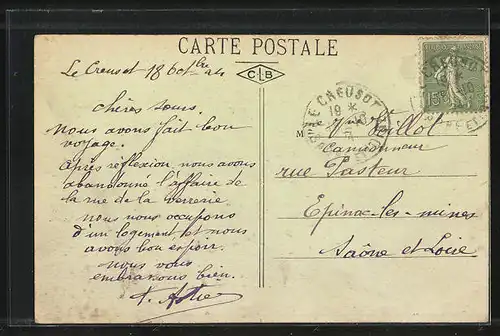 CARTE POSTALE
CLB
Le Creusot 18 Octbre 24
chères sœurs.
nous avons fait bon
voyage.
après réflexion nous avons
abandonné l'affaire de
la rue de la verrerie
nous nous occupons
d'un logement et nous
avons bon espoir.
nous vous
embrassons bien.
LE CREUSOT
M
Veillot
Camionneur
rue Pasteur
Epinac-les-mines
Saône et Loire
CREUSOT
15c